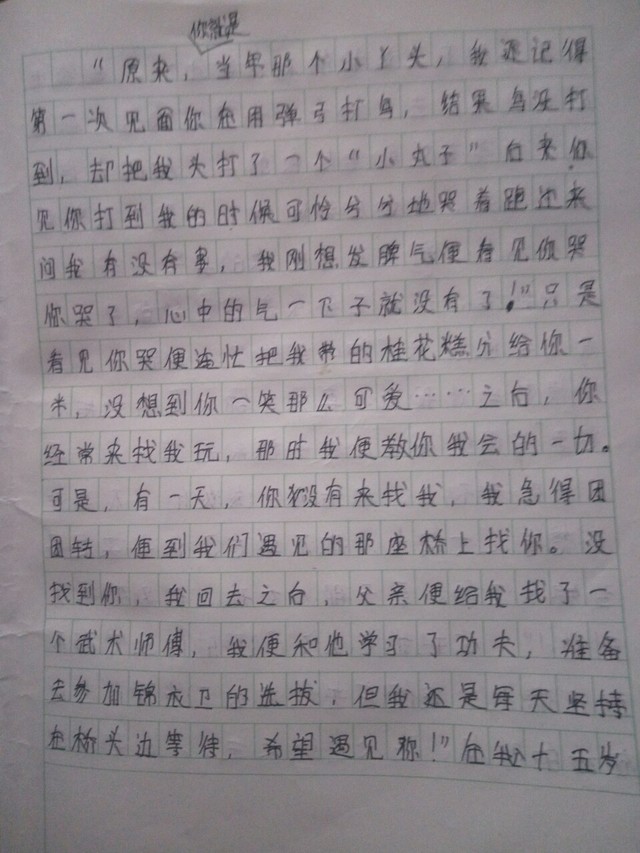 你就是
“原来，当年那个小丫头，我还记得
第一次见面你在用弹弓打鸟，结果鸟没打
到，却把我头打了一个“小丸子”后来你
见你打到我的时候可怜兮兮地哭着跑过来
问我有没有事，我刚想发脾气便看见你哭
你哭了，心中的气一下子就没有了！”只是
看见你哭便连忙把我带的桂花糕分给你一
半，没想到你一笑那么可爱……之后，你
经常来找我玩，那时我便教你我会的一切。
可是，有一天，你没有来找我，我急得团
团转，便到我们遇见的那座桥上找你。没
找到你，我回去之后，父亲便给我找了一
个武术师傅，我便和他学习了功夫，准备
去参加锦衣卫的选拔，但我还是每天坚持
在桥头边等待，希望遇见你！”在我十五岁